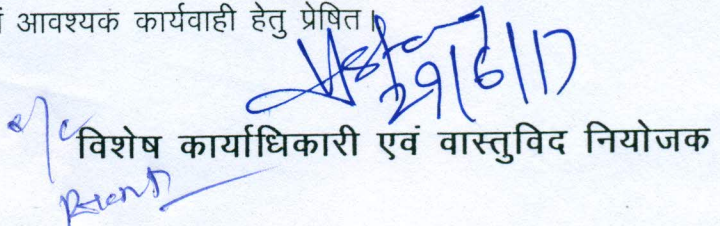 ं आवश्यक कार्यवाही हेतु प्रेषित।
29/6/17
विशेष कार्याधिकारी एवं वास्तुविद नियोजक